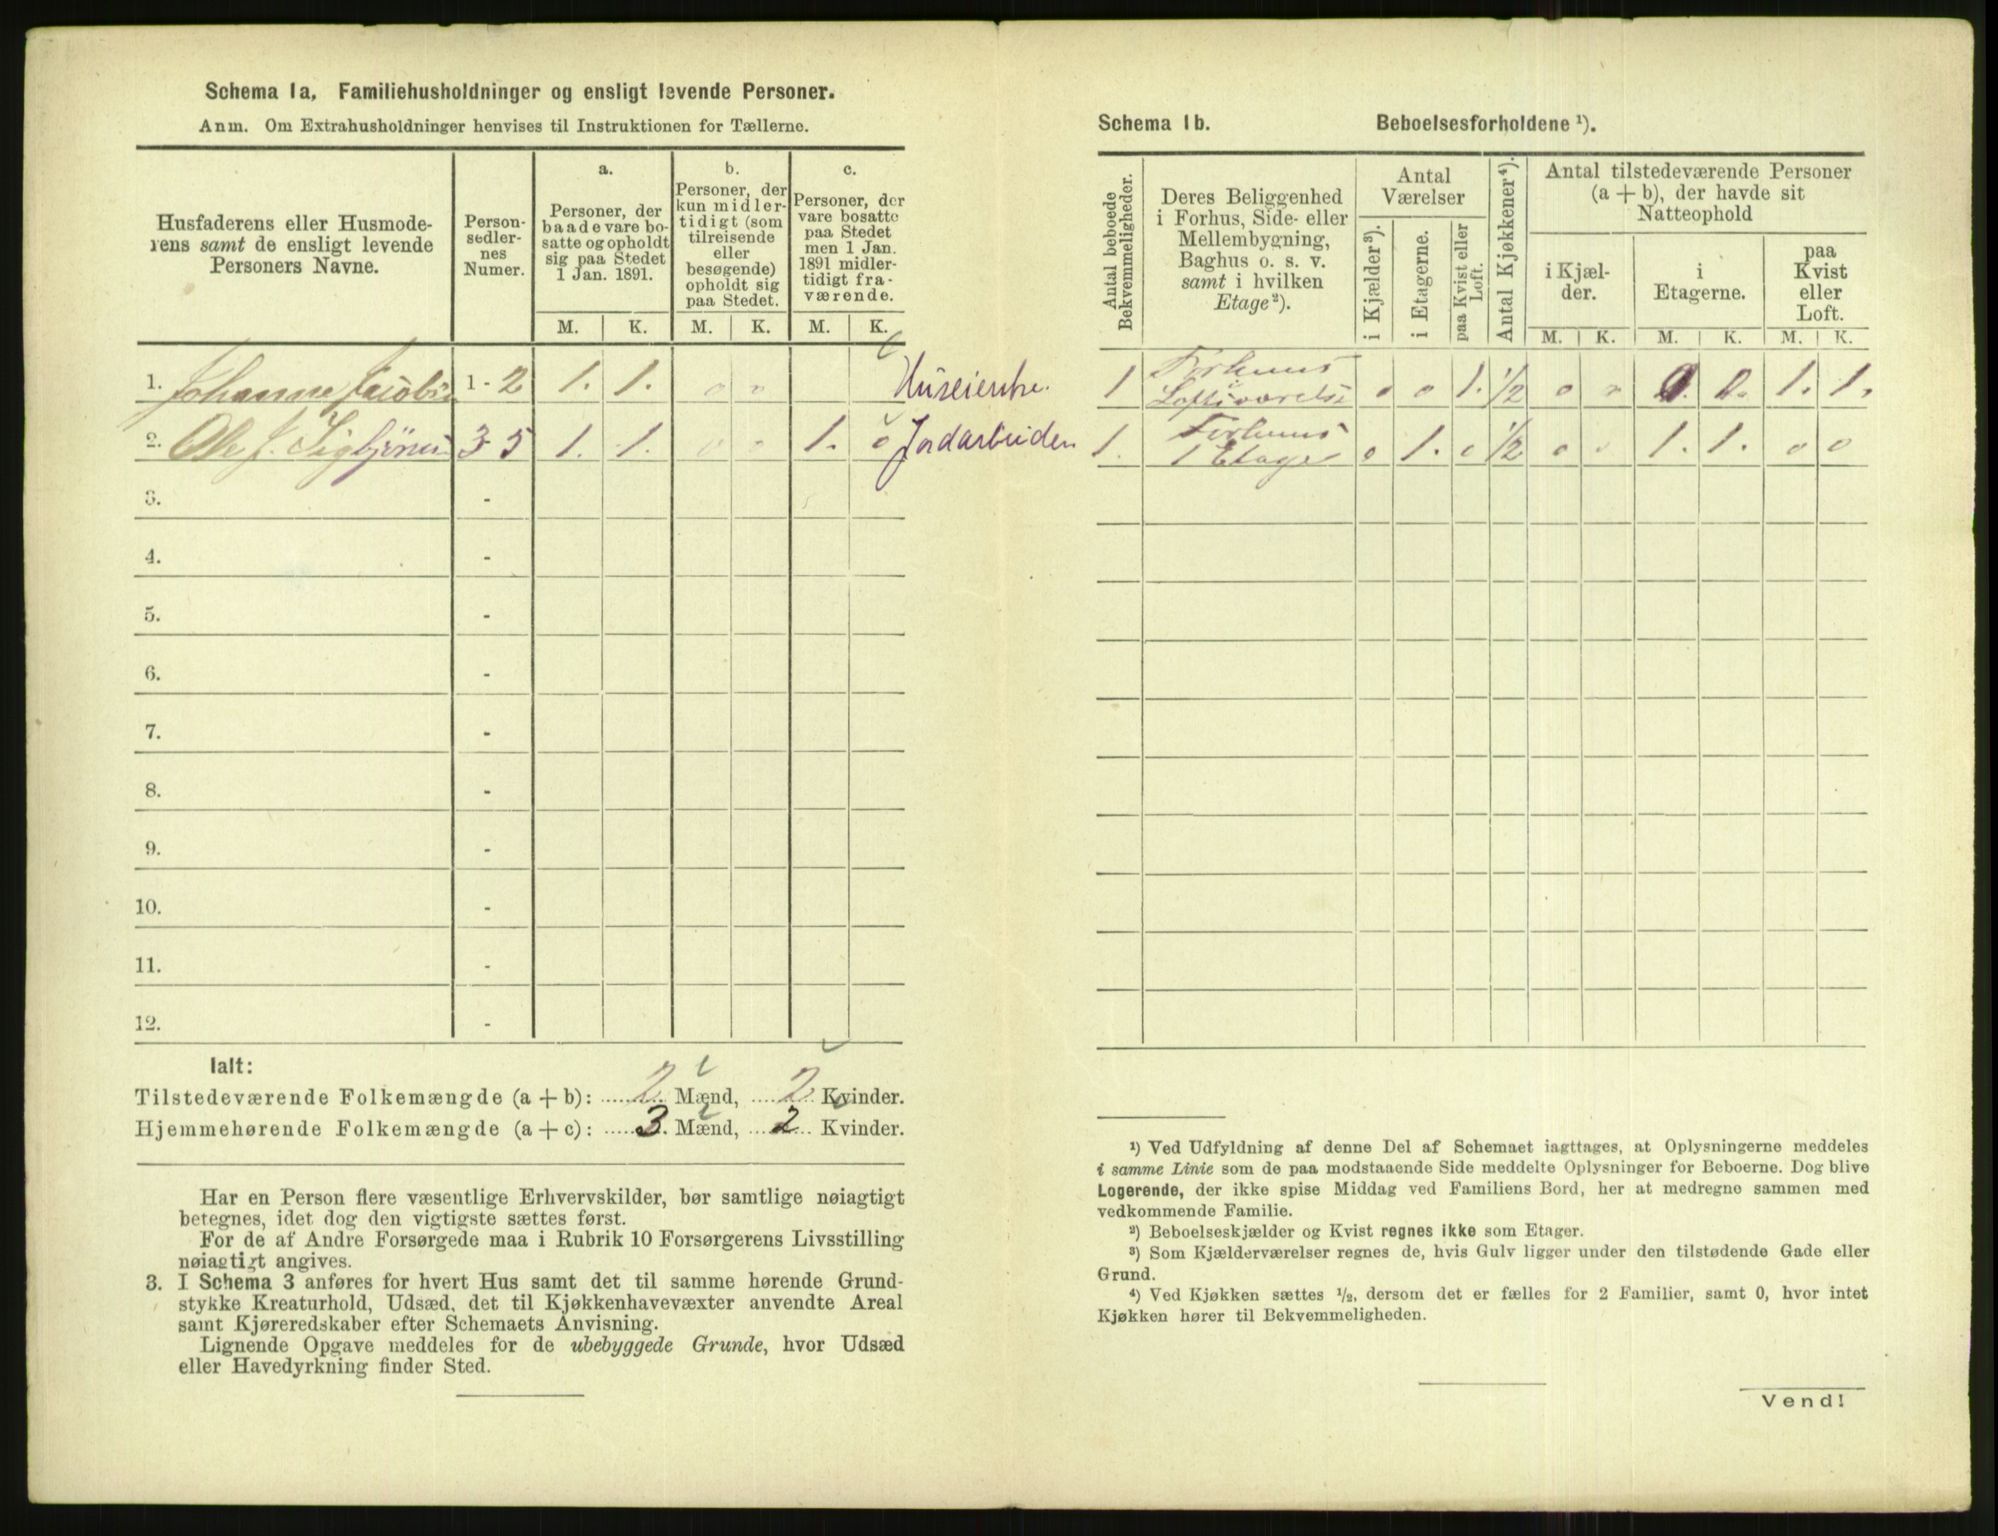 Schema 1a. Familiehusholdninger og ensligt levende Personer.
Anm. Om Extrahusholdninger henvises til Instruktionen for Tællerne.
Husfaderens eller Husmode-
rens samt de ensligt levende
Personers Navne.
Person-
sedler-
nes
Numer.
a.
Personer, der
baade vare bo-
satte og opholdt
sig paa Stedet
1 Jan. 1891.
b.
Personer, der
kun midler-
tidigt (som
tilreisende
eller
besøgende)
opholdt sig
paa Stedet.
c.
Personer, der
vare bosatte
paa Stedet
men 1 Jan.
1891 midler-
tidigt fra-
værende.
M. K. M. K. M. K.
1. Johanne Jacobs 1-2 1. 1. 0 " Huseierske.
2. Ole J. Sigbjørns 3-5 1. 1. 0 " 1. 0 Jordarbeider
3. -
4. -
5. -
6. -
7. -
8. -
9. -
10. -
11. -
12. -
Ialt:
Tilstedeværende Folkemængde (a + b): 2 Mænd, 2 Kvinder.
Hjemmehørende Folkemængde (a + c): 3 Mænd, 2 Kvinder.
Har en Person flere væsentlige Erhvervskilder, bør samtlige nøiagtigt
betegnes, idet dog den vigtigste sættes først.
For de af Andre Forsørgede maa i Rubrik 10 Forsørgerens Livsstilling
nøiagtigt angives.
3. I Schema 3 anføres for hvert Hus samt det til samme hørende Grund-
stykke Kreaturhold, Udsæd, det til Kjøkkenhavevæxter anvendte Areal
samt Kjøreredskaber efter Schemaets Anvisning.
Lignende Opgave meddeles for de ubebyggede Grunde, hvor Udsæd
eller Havedyrkning finder Sted.
Schema 1b. Beboelsesforholdene ¹).
Antal beboede
Bekvemmeligheder.
Deres Beliggenhed
i Forhus, Side- eller
Mellembygning,
Baghus o. s. v.
samt i hvilken
Etage²).
Antal
Værelser
i Kjælder³).
i Etagerne.
paa Kvist eller
Loft.
Antal Kjøkkener⁴).
Antal tilstedeværende Personer
(a + b), der havde sit
Natteophold
i Kjæl-
der.
i
Etagerne.
paa
Kvist
eller
Loft.
M. K. M. K. M. K.
1 Forhuus
Loftsværelse 0 0 1. 1/2 0 " 0. 0. 1. 1.
1. Forhuus
1 Etage 0 1. 0 1/2 0 0 1. 1. 0 0
¹) Ved Udfyldning af denne Del af Schemaet iagttages, at Oplysningerne meddeles
i samme Linie som de paa modstaaende Side meddelte Oplysninger for Beboerne. Dog blive
Logerende, der ikke spise Middag ved Familiens Bord, her at medregne sammen med
vedkommende Familie.
²) Beboelseskjælder og Kvist regnes ikke som Etager.
³) Som Kjælderværelser regnes de, hvis Gulv ligger under den tilstødende Gade eller
Grund.
⁴) Ved Kjøkken sættes ½, dersom det er fælles for 2 Familier, samt 0, hvor intet
Kjøkken hører til Bekvemmeligheden.
Vend!